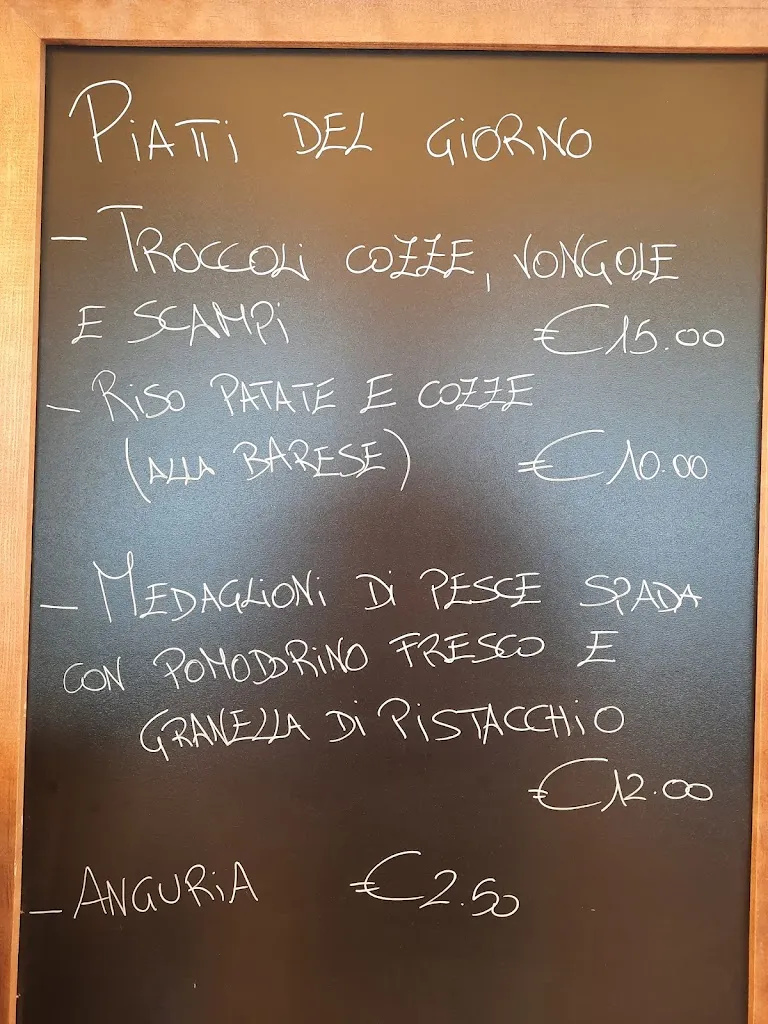 PIATTI DEL GIORNO
- TROCCOLI COZZE, VONGOLE
E SCAMPI €15.00
- RISO PATATE E COZZE
(ALLA BARESE) €10.00
- MEDAGLIONI DI PESCE SPADA
CON POMODORINO FRESCO E
GRANELLA DI PISTACCHIO
€12.00
- ANGURIA €2.50